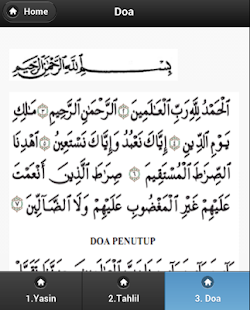 Home
Doa
بِسْمِ اللَّهِ الرَّحْمَٰنِ الرَّحِيمِ
الْحَمْدُ لِلَّهِ رَبِّ الْعَالَمِينَ ۝٢ الرَّحْمَٰنِ الرَّحِيمِ ۝٣ مَالِكِ
يَوْمِ الدِّينِ ۝٤ إِيَّاكَ نَعْبُدُ وَإِيَّاكَ نَسْتَعِينُ ۝٥ اهْدِنَا
الصِّرَاطَ الْمُسْتَقِيمَ ۝٦ صِرَاطَ الَّذِينَ أَنْعَمْتَ
عَلَيْهِمْ غَيْرِ الْمَغْضُوبِ عَلَيْهِمْ وَلَا الضَّالِّينَ ۝٧
DOA PENUTUP
1.Yasin
2.Tahlil
3. Doa